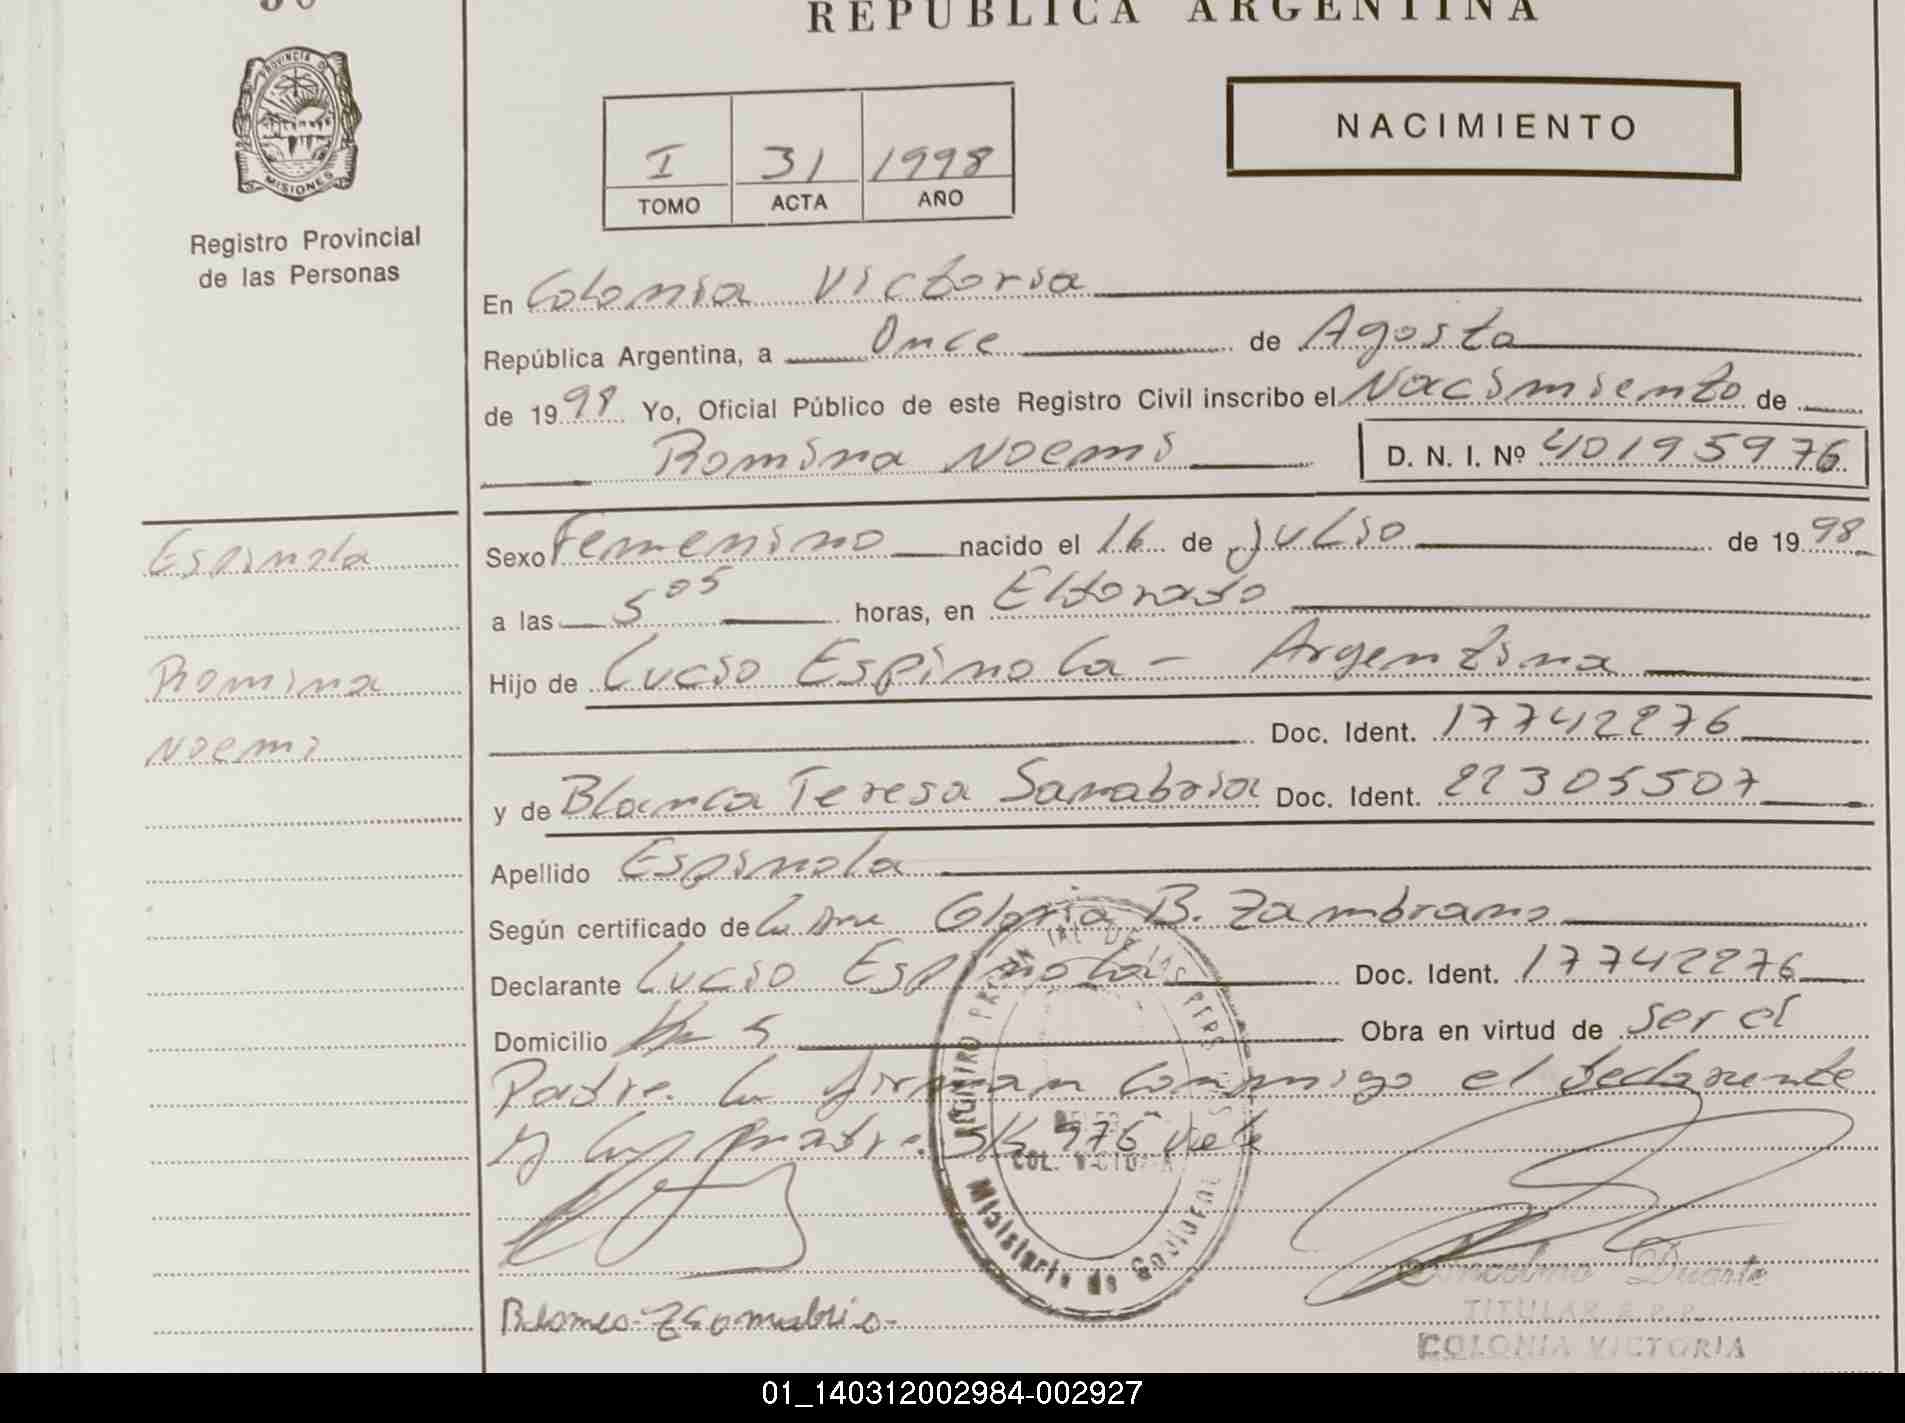 REPUBLICA ARGENTINA
PROVINCIA DE
MISIONES
Registro Provincial
de las Personas
I 31 1998
TOMO ACTA AÑO
NACIMIENTO
En Colonia Victoria
República Argentina, a Once de Agosto
de 1998 Yo, Oficial Público de este Registro Civil inscribo el Nacimiento de
Romina Noemi D. N. I. Nº 40195976
Espinola
Romina
Noemi
Sexo Femenino nacido el 16 de Julio de 1998
a las 5 05 horas, en Eldorado
Hijo de Lucio Espinola - Argentina
Doc. Ident. 17742276
y de Blanca Teresa Sanabria Doc. Ident. 22305507
Apellido Espinola
Según certificado de Gloria B. Zambrano
Declarante Lucio Espinola Doc. Ident. 17742276
Domicilio Km 5 Obra en virtud de ser el
Padre. firman conmigo el declarante
y la madre. S/R 976 Vale
COL. VICTORIA
Ministerio de Gobierno
Duarte
TITULAR
COLONIA VICTORIA
01_140312002984-002927